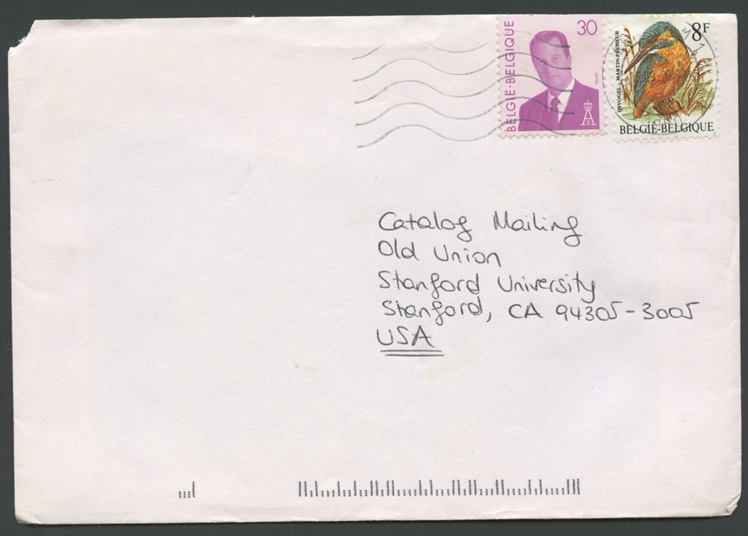 BELGIË-BELGIQUE
30
8F
IJSVOGEL - MARTIN-PÊCHEUR
BELGIË-BELGIQUE
Catalog Mailing
Old Union
Stanford University
Stanford, CA 94305-3005
USA